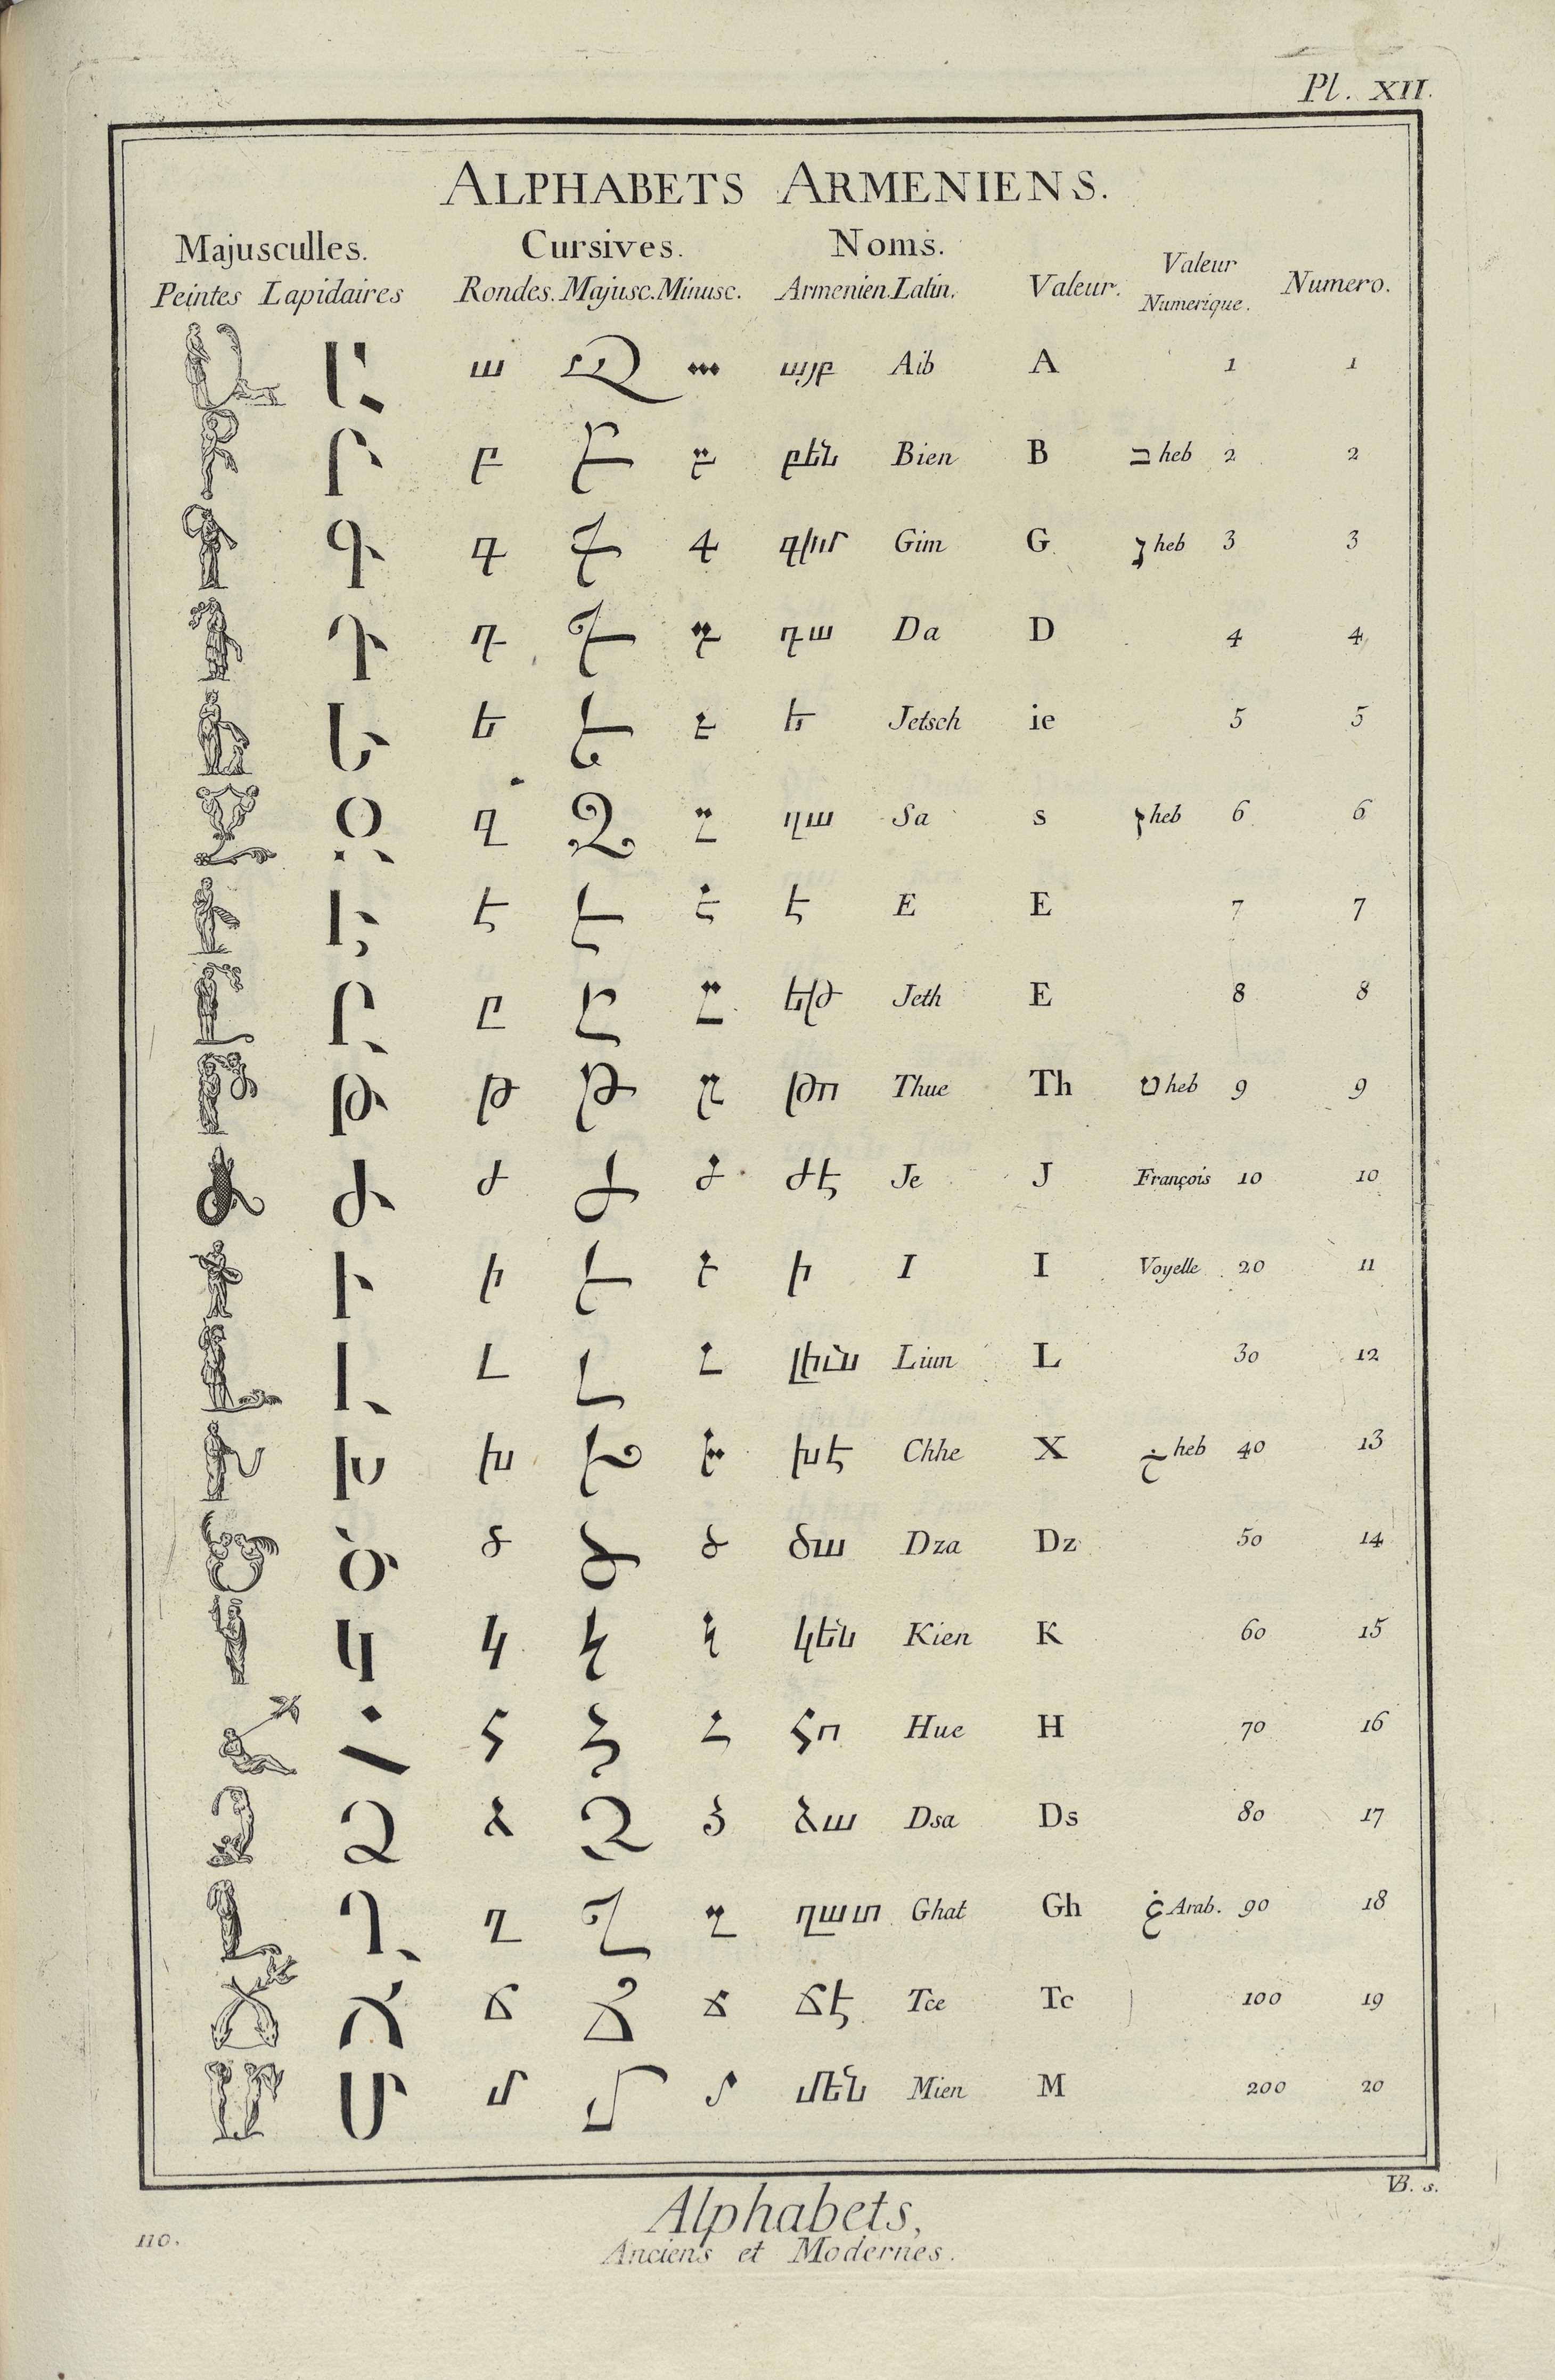 Pl. XII.
ALPHABETS ARMENIENS.
Majusculles. Cursives. Noms.
Peintes Lapidaires Rondes. Majusc. Minusc. Armenien. Latin. Valeur. Valeur Numerique. Numero.
ա այբ Aib A 1 1
բ բեն Bien B ב heb 2 2
գ գիմ Gim G ג heb 3 3
դ դա Da D 4 4
ե ե Jetsch ie 5 5
զ զա Sa s ז heb 6 6
է է E E 7 7
ը եթ Jeth E 8 8
թ թո Thue Th ט heb 9 9
ժ ժէ Je J François 10 10
ի ի I I Voyelle 20 11
լ լիւն Liun L 30 12
խ խէ Chhe X خ heb 40 13
ծ ծա Dza Dz 50 14
կ կեն Kien K 60 15
հ հո Hue H 70 16
ձ ձա Dsa Ds 80 17
ղ ղատ Ghat Gh غ Arab. 90 18
ճ ճէ Tce Tc 100 19
մ մեն Mien M 200 20
VB. s.
Alphabets,
110.
Anciens et Modernes.